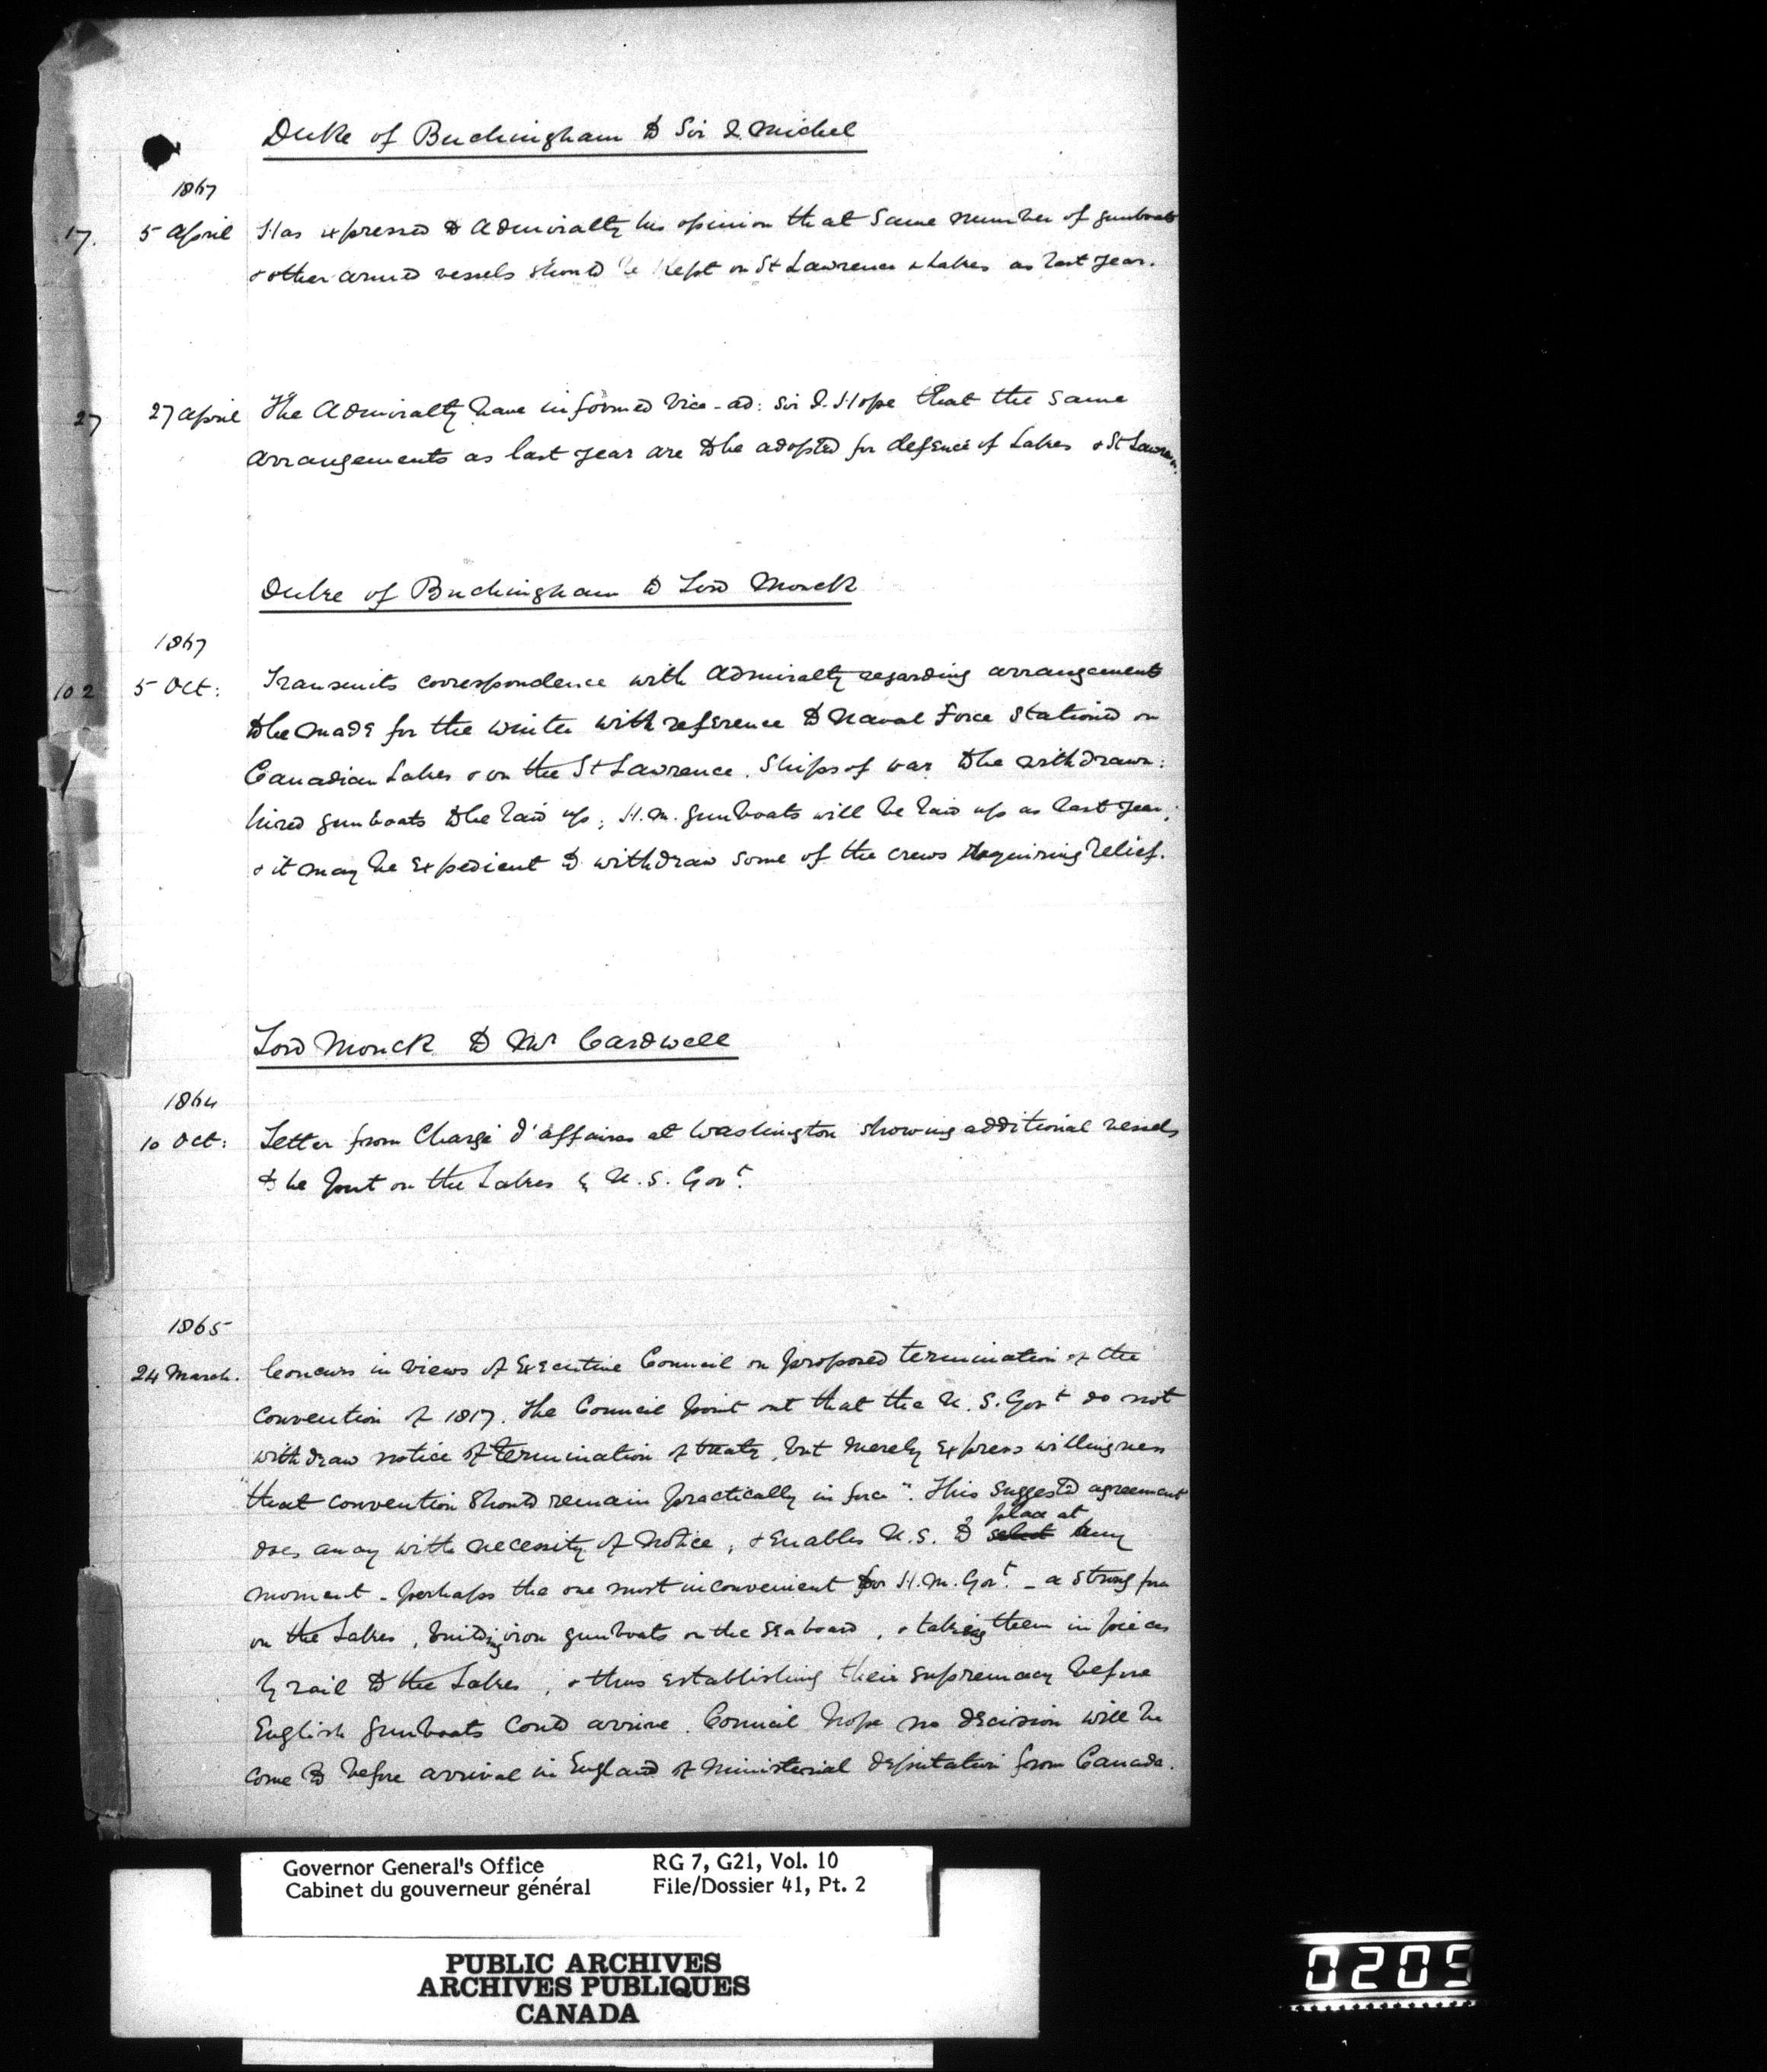 Duke of Buckingham to Sir J. Michel
1867
17. 5 April Has expressed to Admiralty his opinion that same number of gunboats
& other armed vessels should be kept on St Lawrence & Lakes as last year.
27 27 April The Admiralty have informed Vice-ad: Sir J. Hope that the same
arrangements as last year are to be adopted for defence of Lakes & St Lawrence.
Duke of Buckingham to Lord Monck
1867
102 5 Oct: Transmits correspondence with Admiralty regarding arrangements
to be made for the winter with reference to Naval Force stationed on
Canadian Lakes & on the St Lawrence. Ships of war to be withdrawn:
hired gunboats to be laid up; H.M. gunboats will be laid up as last year;
& it may be expedient to withdraw some of the crews requiring relief.
Lord Monck to Mr Cardwell
1864
10 Oct: Letter from Chargé d'affaires at Washington showing additional vessels
to be put on the Lakes by U.S. Govt.
1865
24 March. Concurs in views of Executive Council on proposed termination of the
convention of 1817. The Council point out that the U.S. Govt do not
withdraw notice of termination of treaty, but merely express willingness
"that convention should remain practically in force". This suggested agreement
place at
does away with necessity of notice, & enables U.S. to select any
moment - perhaps the one most inconvenient for H.M. Govt. - a strong force
on the Lakes, building iron gunboats on the seaboard, & taking them in pieces
by rail to the Lakes, & thus establishing their supremacy before
English gunboats could arrive. Council hope no decision will be
come to before arrival in England of Ministerial deputation from Canada.
Governor General's Office RG 7, G21, Vol. 10
Cabinet du gouverneur général File/Dossier 41, Pt. 2
PUBLIC ARCHIVES
ARCHIVES PUBLIQUES
CANADA
0205